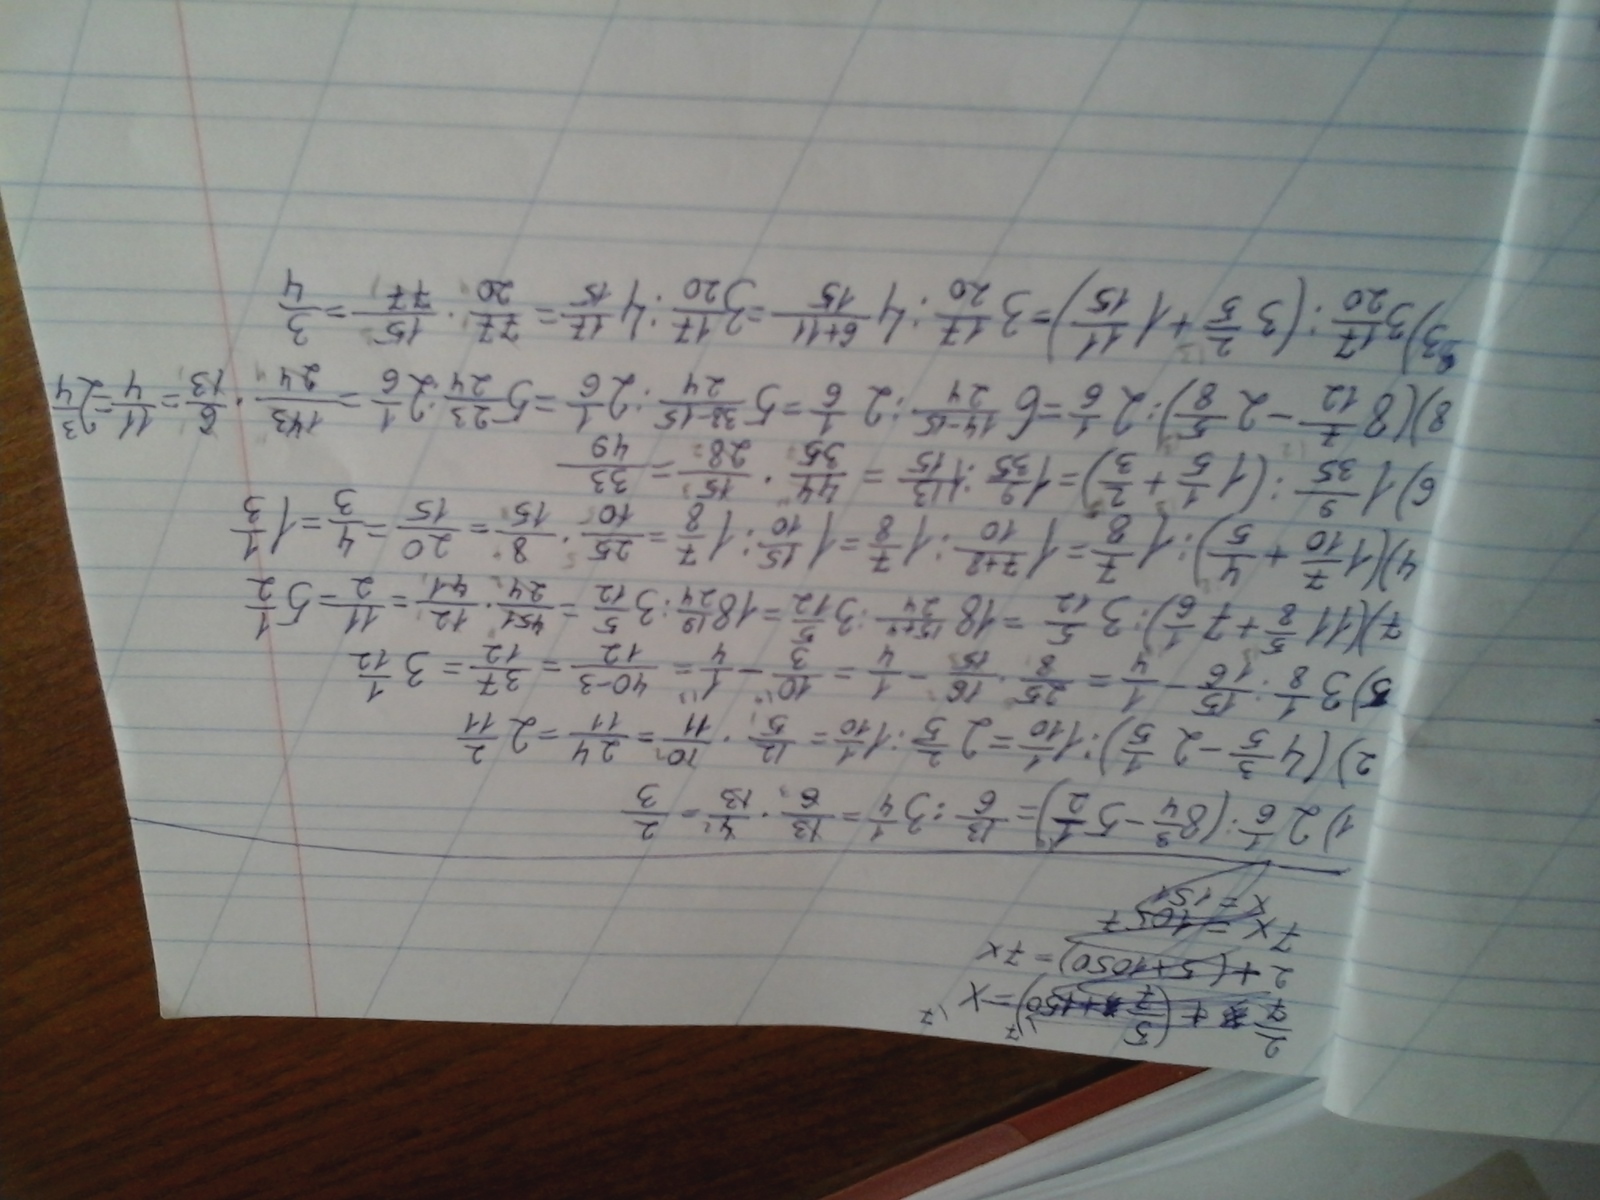 2/7 x + (5/7 x + 150) = x
2 + (5 + 1050) = 7x
7x = 1057
x = 151
1) 2 1/6 : (8 3/4 - 5 1/2) = 13/6 : 3 1/4 = 13/6 · 4/13 = 2/3
2) (4 3/5 - 2 1/5) : 1 1/10 = 2 2/5 : 1 1/10 = 12/5 · 10/11 = 24/11 = 2 2/11
5) 3 1/8 : 15/16 - 1/4 = 25/8 · 16/15 - 1/4 = 10/3 - 1/4 = 40-3/12 = 37/12 = 3 1/12
7) (11 5/8 + 7 1/6) : 3 5/12 = 18 15+4/24 : 3 5/12 = 18 19/24 : 3 5/12 = 451/24 · 12/41 = 11/2 = 5 1/2
4) (1 7/10 + 4/5) : 1 7/8 = 1 7+8/10 : 1 7/8 = 1 15/10 : 1 7/8 = 25/10 · 8/15 = 20/15 = 4/3 = 1 1/3
6) 1 9/35 : (1 1/5 + 2/3) = 1 9/35 : 1 13/15 = 44/35 · 15/28 = 33/49
8) (8 7/12 - 2 5/8) : 2 1/6 = 6 14-15/24 : 2 1/6 = 5 38-15/24 : 2 1/6 = 5 23/24 : 2 1/6 = 143/24 · 6/13 = 11/4 = 2 3/4
3) 3 17/20 : (3 2/5 + 1 11/15) = 3 17/20 : 4 6+11/15 = 3 17/20 : 4 17/15 = 77/20 · 15/77 = 3/4